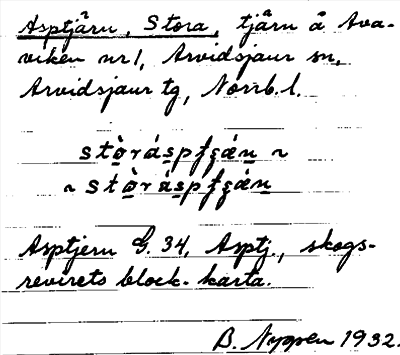 Asptjärn, Stora, tjärn å Ava-
viken nr 1, Arvidsjaur sn,
Arvidsjaur tg, Norrb. l.
stò̱ráspʄʒán ~
~ stò̱rás̱pʄʒán
Asptjern G. 34, Asptj., skogs-
revirets block-karta.
B. Nygren 1932.